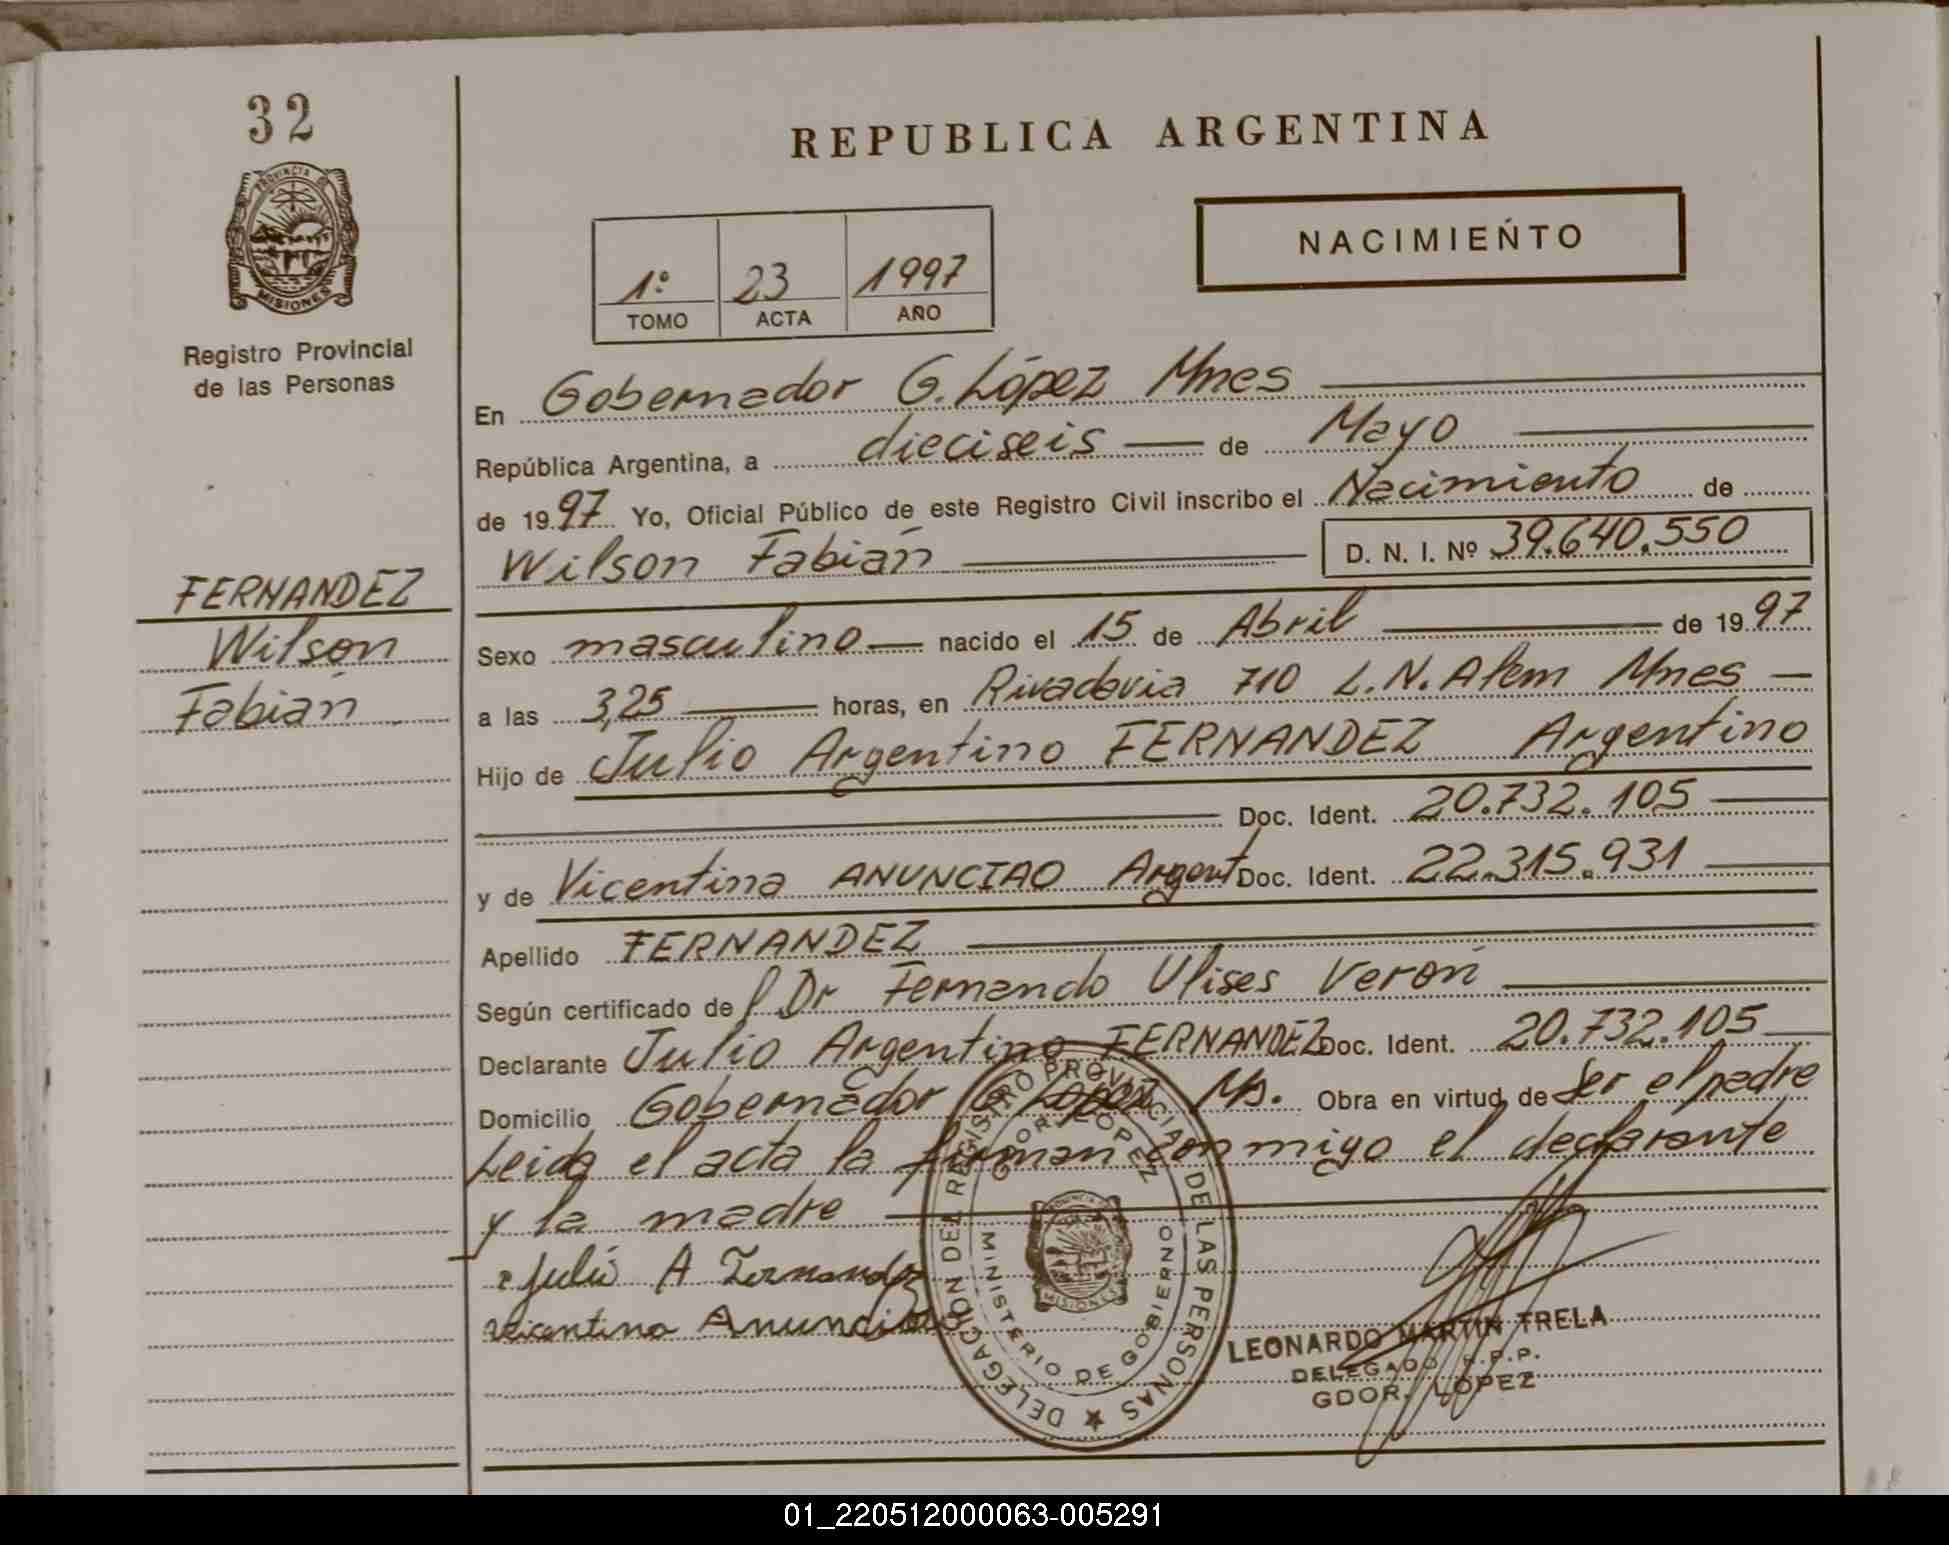 32
PROVINCIA DE
MISIONES
Registro Provincial
de las Personas
FERNANDEZ
Wilson
Fabián
REPUBLICA ARGENTINA
NACIMIENTO
1º 23 1997
TOMO ACTA AÑO
En Gobernador G. López Mnes
República Argentina, a dieciseis de Mayo
de 1997 Yo, Oficial Público de este Registro Civil inscribo el Nacimiento de
Wilson Fabián D. N. I. Nº 39.640.550
Sexo masculino nacido el 15 de Abril de 1997
a las 3,25 horas, en Rivadavia 710 L.N. Alem Mnes
Hijo de Julio Argentino FERNANDEZ Argentino
Doc. Ident. 20.732.105
y de Vicentina ANUNCIAO Argent Doc. Ident. 22.315.931
Apellido FERNANDEZ
Según certificado del Dr Fernando Ulises Verón
Declarante Julio Argentino FERNANDEZ Doc. Ident. 20.732.105
Domicilio Gobernador G López Ms. Obra en virtud de Ser el padre
Leida el acta la firman conmigo el declarante
y la madre
Julio A Fernandez
Vicentina Anunciao
DELEGACION DEL REGISTRO PROVINCIAL DE LAS PERSONAS
GDOR. LOPEZ
MINISTERIO DE GOBIERNO
MISIONES
LEONARDO MARTIN TRELA
DELEGADO R.P.P.
GDOR. LOPEZ
01_220512000063-005291